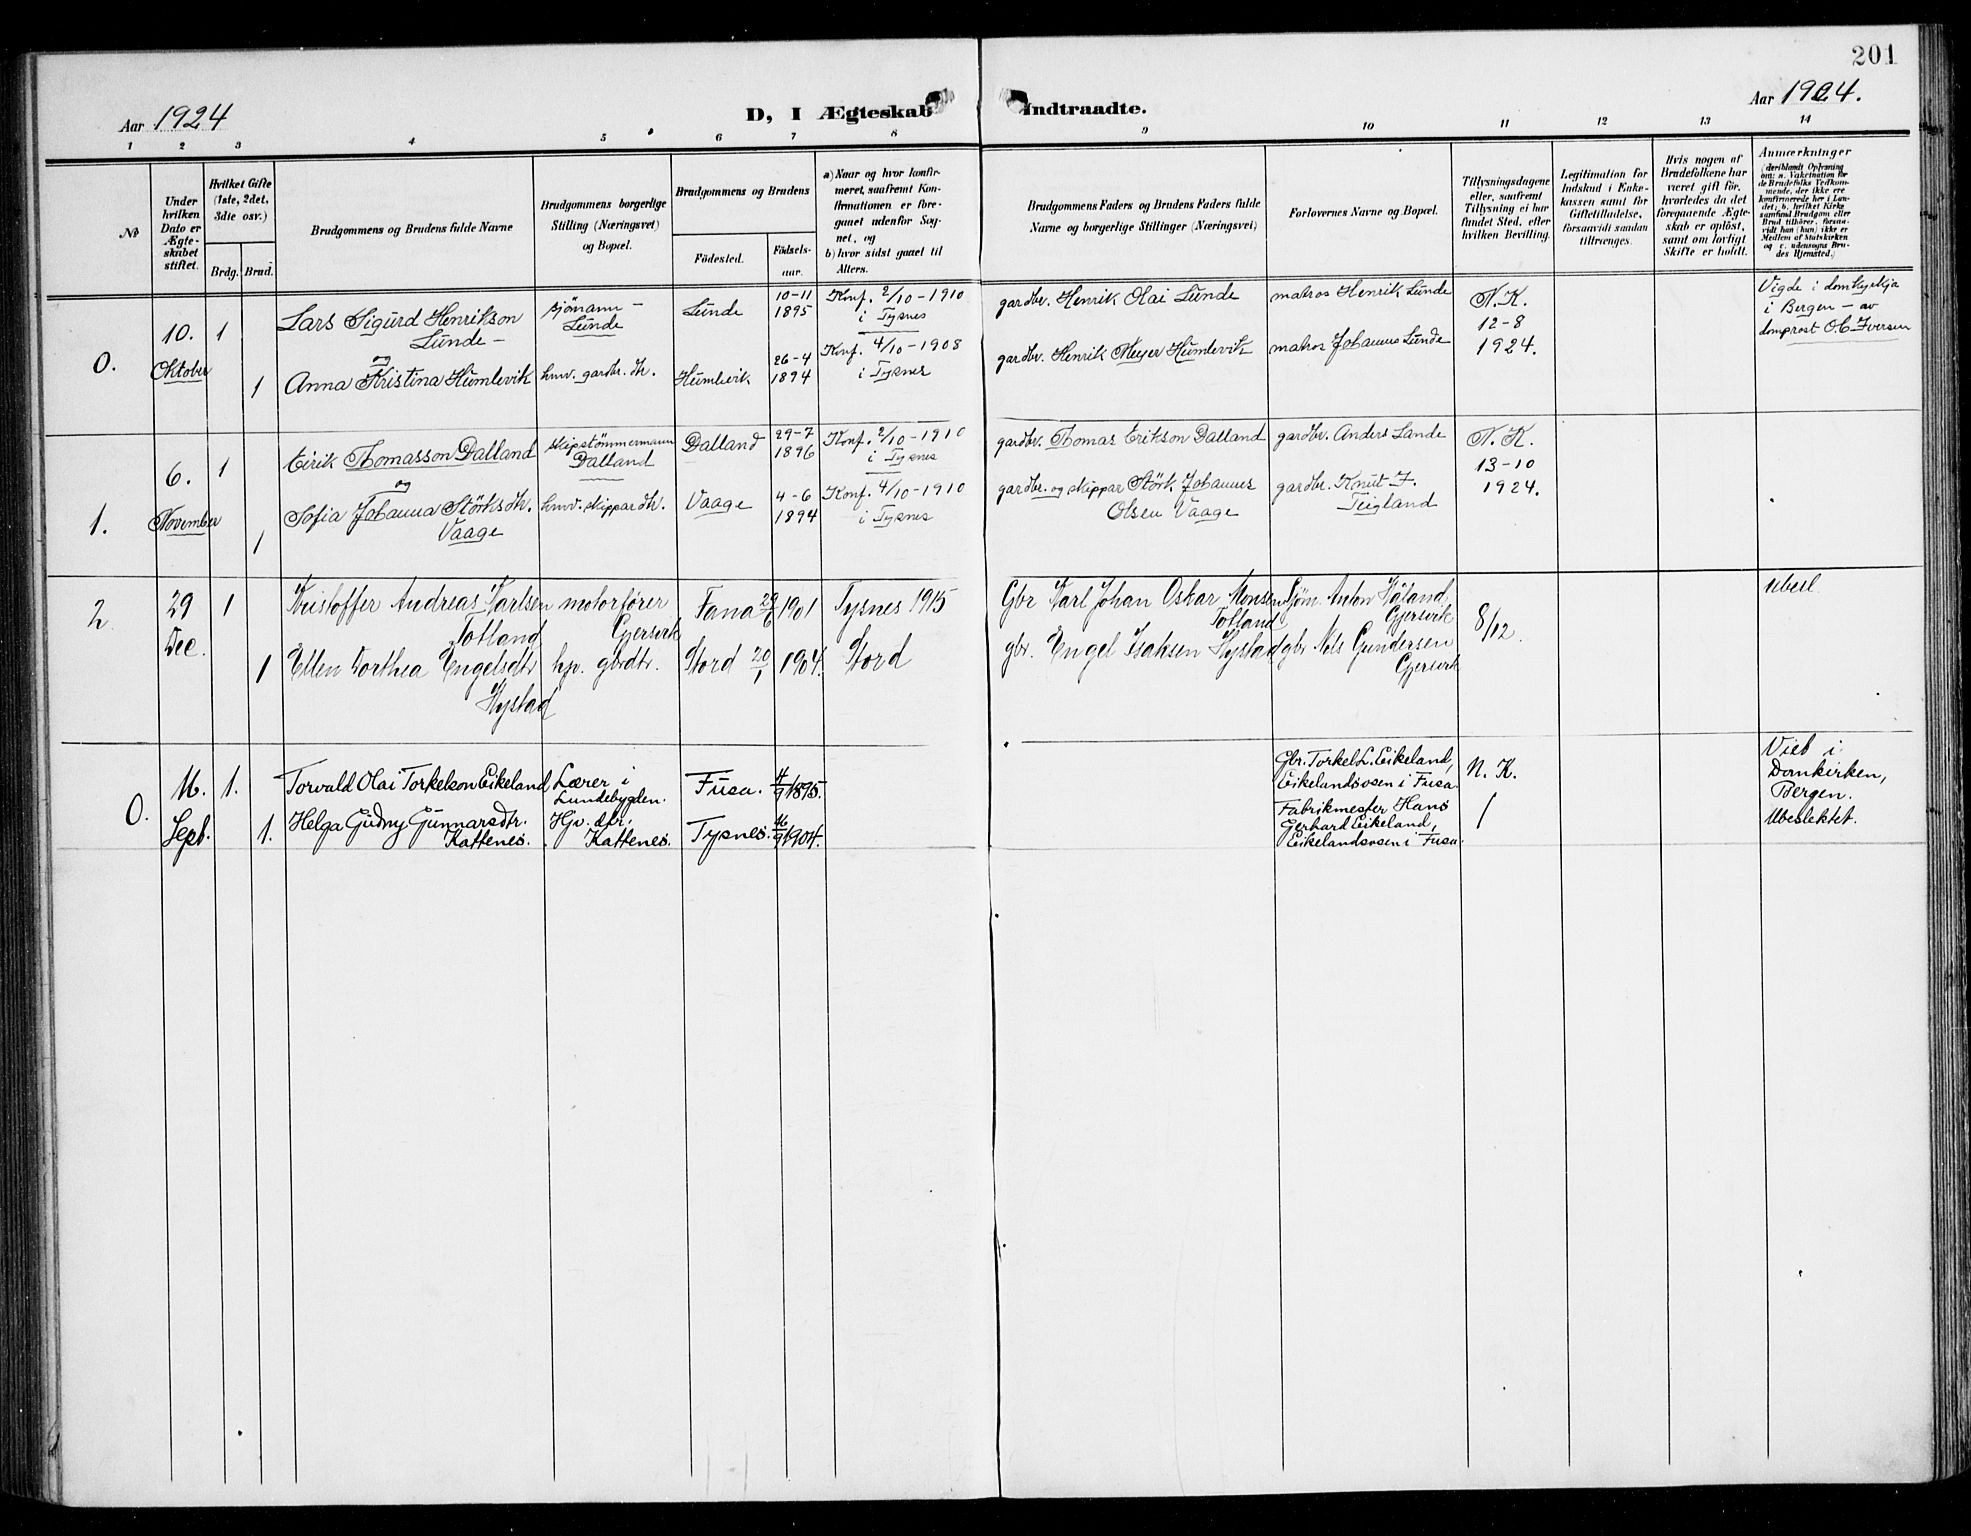 201
Aar 1924
D, I Ægteskab Indtraadte.
Aar 1924.
1 2 3 4 5 6 7 8 9 10 11 12 13 14
No
Under hvilken Dato er Ægteskabet stiftet.
Hvilket Gifte (1ste, 2det, 3die osv.)
Brdg. Brud.
Brudgommens og Brudens fulde Navne
Brudgommens borgerlige Stilling (Næringsvei) og Bopæl.
Brudgommens og Brudens
Födested. Födsels-aar.
a) Naar og hvor konfirmeret, saafremt Konfirmationen er foregaaet udenfor Sognet, og
b) hvor sidst gaaet til Alters.
Brudgommens Faders og Brudens Faders fulde Navne og borgerlige Stillinger (Næringsvei)
Forlovernes Navne og Bopæl.
Tillysningsdagene eller, saafremt Tillysning ei har fundet Sted, efter hvilken Bevilling.
Legitimation for Indskud i Enkekassen samt for Giftetilladelse, forsaavidt saadan tiltrænges.
Hvis nogen af Brudefolkene har været gift før, hvorledes da det foregaaende Ægteskab er opløst, samt om lovligt Skifte er holdt.
Anmærkninger
(deriblandt Oplysning om: a. Vaksination for de Brudefolks Vedkommende, der ikke ere konfirmerede her i Landet; b. hvilket Kirkesamfund Brudgom eller Brud tilhører, forsaavidt han (hun) ikke er Medlem af Statskirken og c. udensogns Brudes Hjemsted.)
0.
10. Oktober
1
Lars Sigurd Henrikson
Lunde –
og
sjømann –
Lunde
Lunde
10-11
1895
Konf. 2/10-1910
i Tysnes
gardbr. Henrik Olai Lunde
matros Henrik Lunde
N. K.
12-8
1924.
Vigde i domkyrkja
i Bergen – av
domprost O.C. Iversen
1
Anna Kristina Humlevik
hmv. gardbr. dtr.
Humlevik
26-4
1894
Konf. 4/10-1908
i Tysnes
gardbr. Henrik Meyer Humlevik
matros Johannes Lunde
1.
6. November
1
Eirik Thomasson Dalland
og
skipstömmermann
Dalland
Dalland
29-7
1896
Konf. 2/10-1910
i Tysnes
gardbr. Thomas Erikson Dalland
gardbr. Anders Lande
N. K.
13-10
1924.
1
Sofia Johanna Störksdtr.
Vaage
hmv. skippardtr.
Vaage
4-6
1894
Konf. 4/10-1910
i Tysnes
gardbr. og skippar Störk Johannes
Olsen Vaage
gardbr. Knut J.
Teigland
2
29
Dec.
1
Kristoffer Andreas Karlsen
Totland
motorfører
Gjersvik
Fana 29/6 1901
Tysnes 1915
Gbr Karl Johan Oskar Monsen
Totland
Sjøm. Anton Håland,
Gjersvik
8/12.
ubesl.
1
Ellen Dorthea Engelsdtr
Hystad
hp. gbrdtr.
Stord 20/1 1904.
Stord
gbr. Engel Isaksen Hystad
gbr Nels Gundersen
Gjersvik
0.
16.
Sept.
1.
Torvald Olai Torkelson Eikeland
Lærer i
Lundebygden.
Fusa.
4/9 1895.
Gbr. Torkel L. Eikeland,
Eikelandsosen i Fusa.
N. K.
Viet i
Domkirken,
Bergen.
Ubeslektet.
1.
Helga Gudny Gunnarsdtr.
Kattenes.
Hjv. dtr.
Kattenes.
Tysnes.
16/9 1904.
Fabrikmester Hans
Gerhard Eikeland,
Eikelandsosen i Fusa.